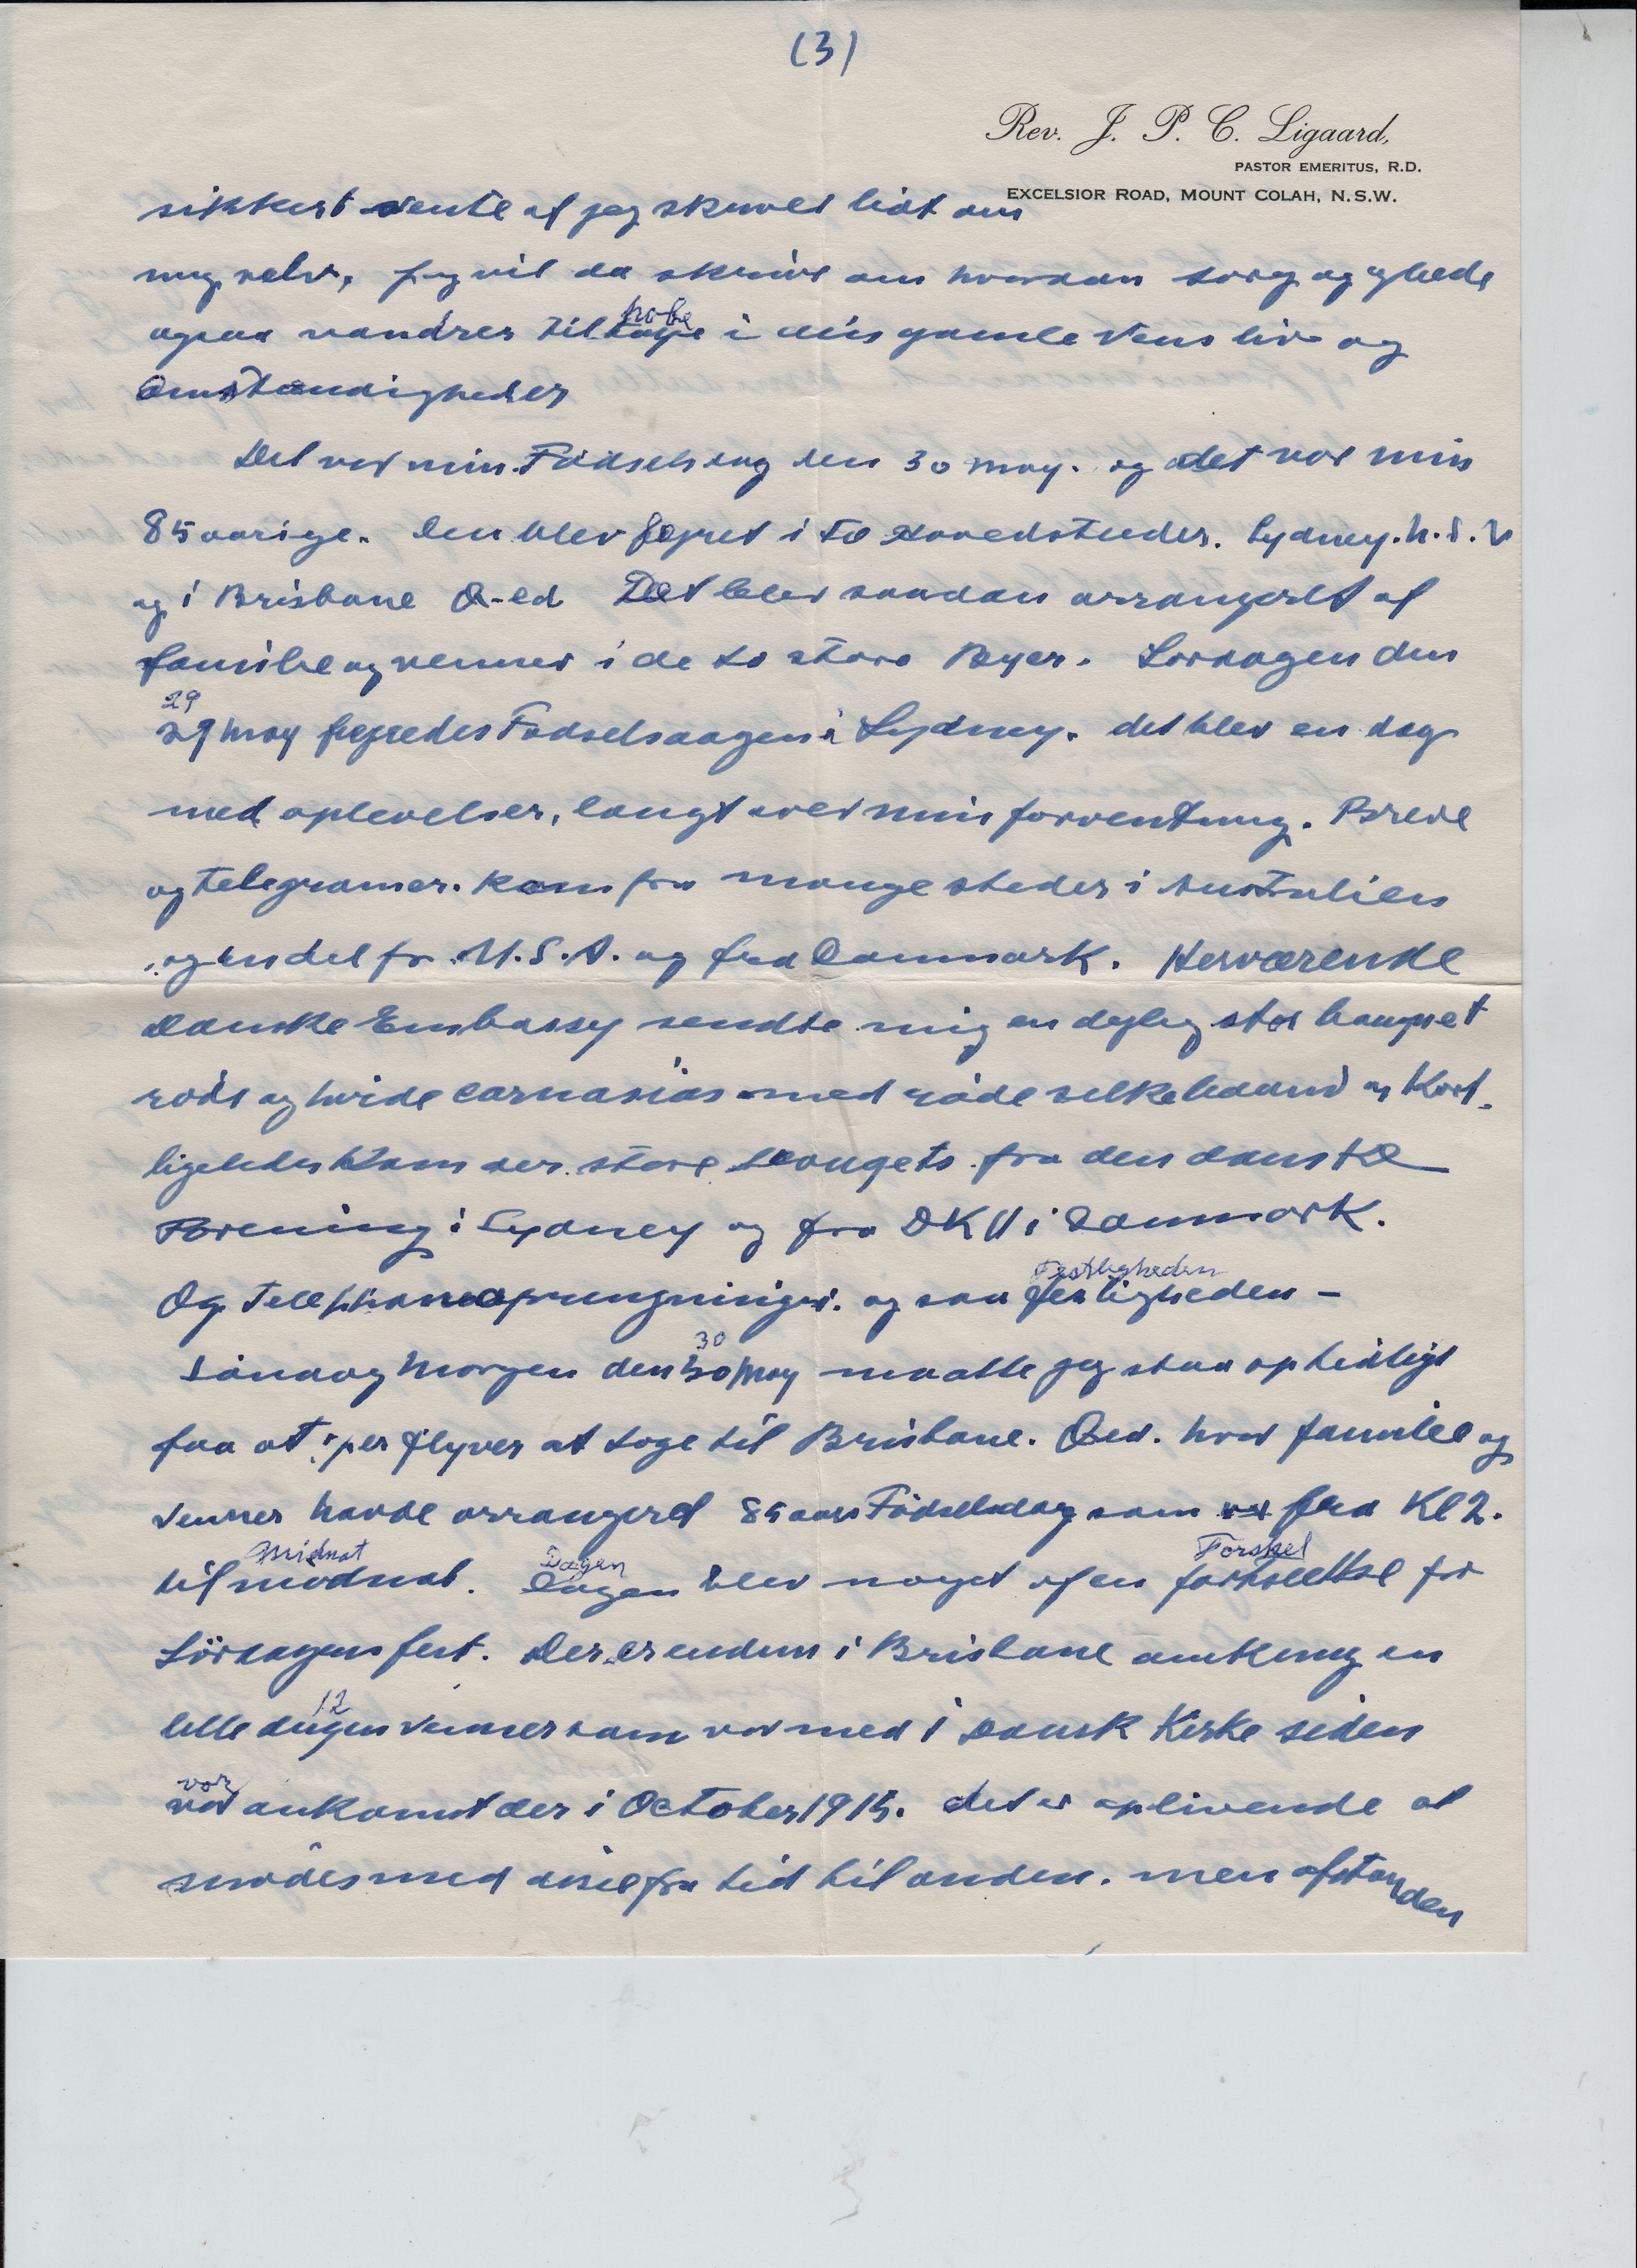 (3)
Rev. J. P. C. Ligaard,
PASTOR EMERITUS, R.D.
EXCELSIOR ROAD, MOUNT COLAH, N.S.W.
sikkert vente at jeg skrevet lidt om
mig selv, jeg vil da skrive om hvordan sorg og glæde
ogsaa vandrer til hobe i din gamle Vens liv og
Omstændigheder
Det var min Födselsdag den 30 May. og det var min
85 aarige. Den blev fejret i to Hovedstæder. Sydney. N.S.W
og i Brisbane Q-ld Det blev saadan arrangeret af
familie og venner i de to store Byer. Lördagen den
29
29 May fejredes Födselsdagen i Sydney. det blev en dag
med oplevelser, langt over min forventning. Breve
og Telegramer. kom fra mange steder i Australien
og endel fr. U.S.A. og fra Danmark. Herværende
Danske Embassy sendte mig en dejlig stor bauquet
röde og hvide carnasias med röde silkebaand og Kort.
ligeledes kom der store bouqets fra den danske
Forening i Sydney og fra DKU i Danmark.
Og Telephone opringninger. og saa
Festligheden
festligheden -
Söndag Morgen den
30
30 May maatte jeg staa op tidligt
faa at per flyver at tage til Brisbane. Qld. hvor familie og
Venner havde arrangeret 85 aars Födselsdag som fra Kl 2.
Midnat
til midnat.
Dagen
Dagen blev noget af en
Forskel
fortsættelse for
Lördagens fest. Der er endnu i Brisbane omkring en
lille
12
dusen Venner som var med i Dansk Kirke siden
vor
vor ankomst der i October 1915. det er oplivende at
mödes med disse fra tid til anden. men afstanden